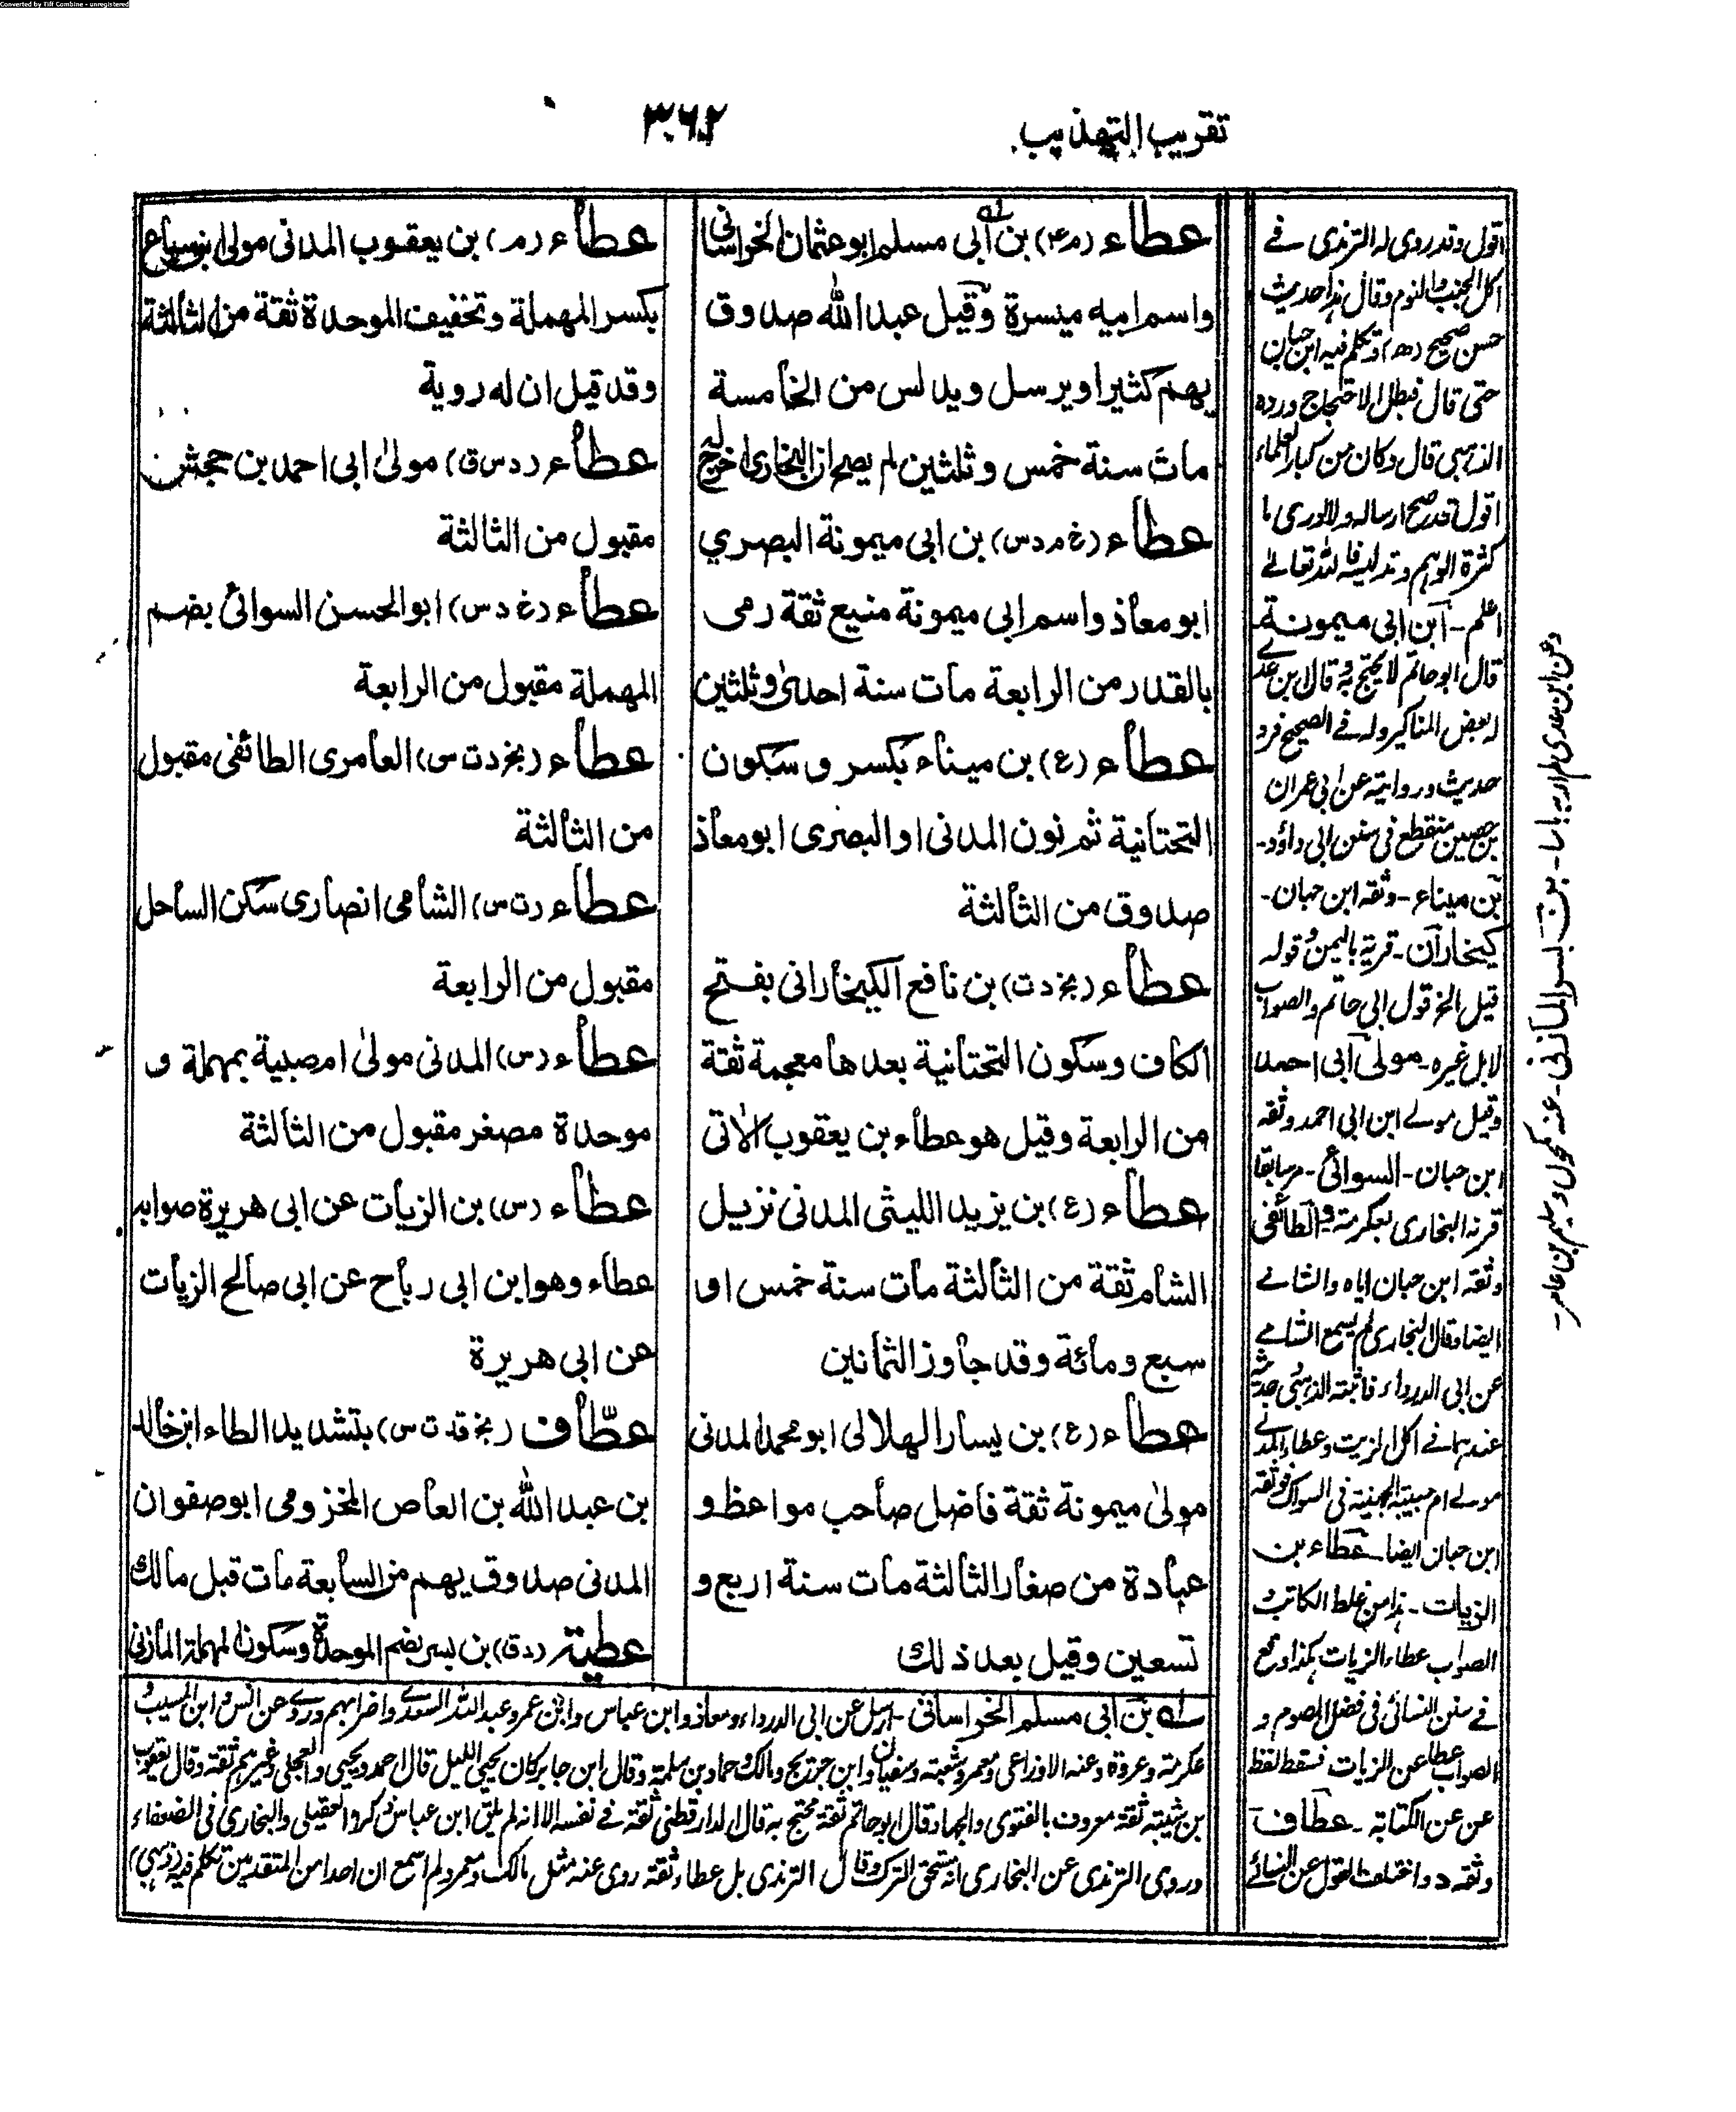 Converted by Tiff Combine - unregistered
تقريب التهذيب
٣٦٢
عطاء (م ٤) بن ابی مسلم ابو عثمان الخراسانی
واسم ابيه ميسرة وقيل عبد الله صدوق
يهم كثيرا ويرسل ويدلس من الخامسة
مات سنة خمس وثلثين لم يصح ان البخاری اخرج له
عطاء (خ م د س) بن ابی ميمونة البصري
ابو معاذ واسم ابی ميمونة منيع ثقة رمی
بالقدر من الرابعة مات سنة احدی وثلثين
عطاء (ع) بن ميناء بكسر وسكون
التحتانية ثم نون المدنی او البصری ابو معاذ
صدوق من الثالثة
عطاء (بخ د ت) بن نافع الكيخارانی بفتح
الكاف وسكون التحتانية بعدها معجمة ثقة
من الرابعة وقيل هو عطاء بن يعقوب الاتی
عطاء (ع) بن يزيد الليثی المدنی نزيل
الشام ثقة من الثالثة مات سنة خمس او
سبع ومائة وقد جاوز الثمانين
عطاء (ع) بن يسار الهلالی ابو محمد المدنی
مولی ميمونة ثقة فاضل صاحب مواعظ و
عبادة من صغار الثالثة مات سنة اربع و
تسعين وقيل بعد ذلك
عطاء (م) بن يعقوب المدنی مولی ابن سباع
بكسر المهملة وتخفيف الموحدة ثقة من الثالثة
وقد قيل ان له روية
عطاء (د س ق) مولی ابی احمد بن جحش
مقبول من الثالثة
عطاء (خ د س) ابو الحسن السوائی بضم
المهملة مقبول من الرابعة
عطاء (بخ د ت س) العامری الطائفی مقبول
من الثالثة
عطاء (ت س) الشامی انصاری سكن الساحل
مقبول من الرابعة
عطاء (س) المدنی مولی ام صبية بمهملة و
موحدة مصغر مقبول من الثالثة
عطاء (س) بن الزيات عن ابی هريرة صوابه
عطاء وهو ابن ابی رباح عن ابی صالح الزيات
عن ابی هريرة
عطّاف (بخ قد ت س) بتشديد الطاء ابن خالد
بن عبد الله بن العاص المخزومی ابو صفوان
المدنی صدوق يهم من السابعة مات قبل مالك
عطية (د ق) بن بسر بضم الموحدة وسكون المهملة المازنی
اقول وقد روی له الترمذی فے
اكل الجنب والنوم وقال هذا حديث
حسن صحيح (ه) وتكلم فيه ابن حبان
حتی قال فبطل الاحتجاج ورده
الذهبی قال وكان من كبار العلماء
اقول قد صح ارساله ولا ادری ما
كثرة الوهم وتدليسه فالله تعالے
اعلم - ابن ابی ميمونة
قال ابو حاتم لا يحتج به وقال ابن عدے
له بعض المناكير وله فے الصحيح فرد
حديث وروايته عن ابی عمران
بن حصين منقطع فی سنن ابی داؤد -
بن ميناء - وثقه ابن حبان -
كيخاران - قرية باليمن وقوله
قيل الخ قول ابی حاتم والصواب
لا بل غيره - مولی ابی احمد
وقيل مولے ابن ابی احمد وثقه
ابن حبان - السوائی - مر سابقا
قرنه البخاری بعكرمة - والطائفی
وثقه ابن حبان اياه والشامے
ايضا وقال البخاری لم يسمع الشامے
عن ابی الدرداء فاثبته الذهبی حديثه
عندهما فے اكل الزيت وعطاء المدنے
مولے ام صبية الجهنية فی السواك فوثقه
ابن حبان ايضا - عطاء بن
الزيات - هذا من غلط الكاتب
الصواب عطاء الزيات هكذا وقع
فے سنن النسائی فی فضل الصوم و
الصواب عطاء عن الزيات فسقط لفظ
عن عن الكتابة - عطاف
وثقه د واختلف القول عن النسائے
سله بن ابی مسلم الخراسانی - ارسل عن ابی الدرداء ومعاذ وابن عباس وابن عمرو عبد الله السعدے واضرابهم وروے عن انس وابن المسيب و
عكرمة وعروة وعنه الاوزاعی ومعمر وشعبة وسفيان وابن جريج ومالك وحماد بن سلمة وقال ابن جابر كان يحيی الليل قال احمد ويحيی والعجلی وغيرهم ثقة وقال يعقوب
بن شيبة ثقة معروف بالفتوی والجهاد وقال ابو حاتم ثقة محتج به قال الدارقطنی ثقة فے نفسه الا انه لم يلق ابن عباس ذكره العقيلی والبخاری فی الضعفاء
وروی الترمذی عن البخاری انه يستحق الترك وقال الترمذی بل عطاء ثقة روی عنه مثل مالك ومعمر ولم اسمع ان احدا من المتقدمين تكلم فيه (ذهبی)
بن بسر المازنی - عنه مكحول وسليم بن عامر -